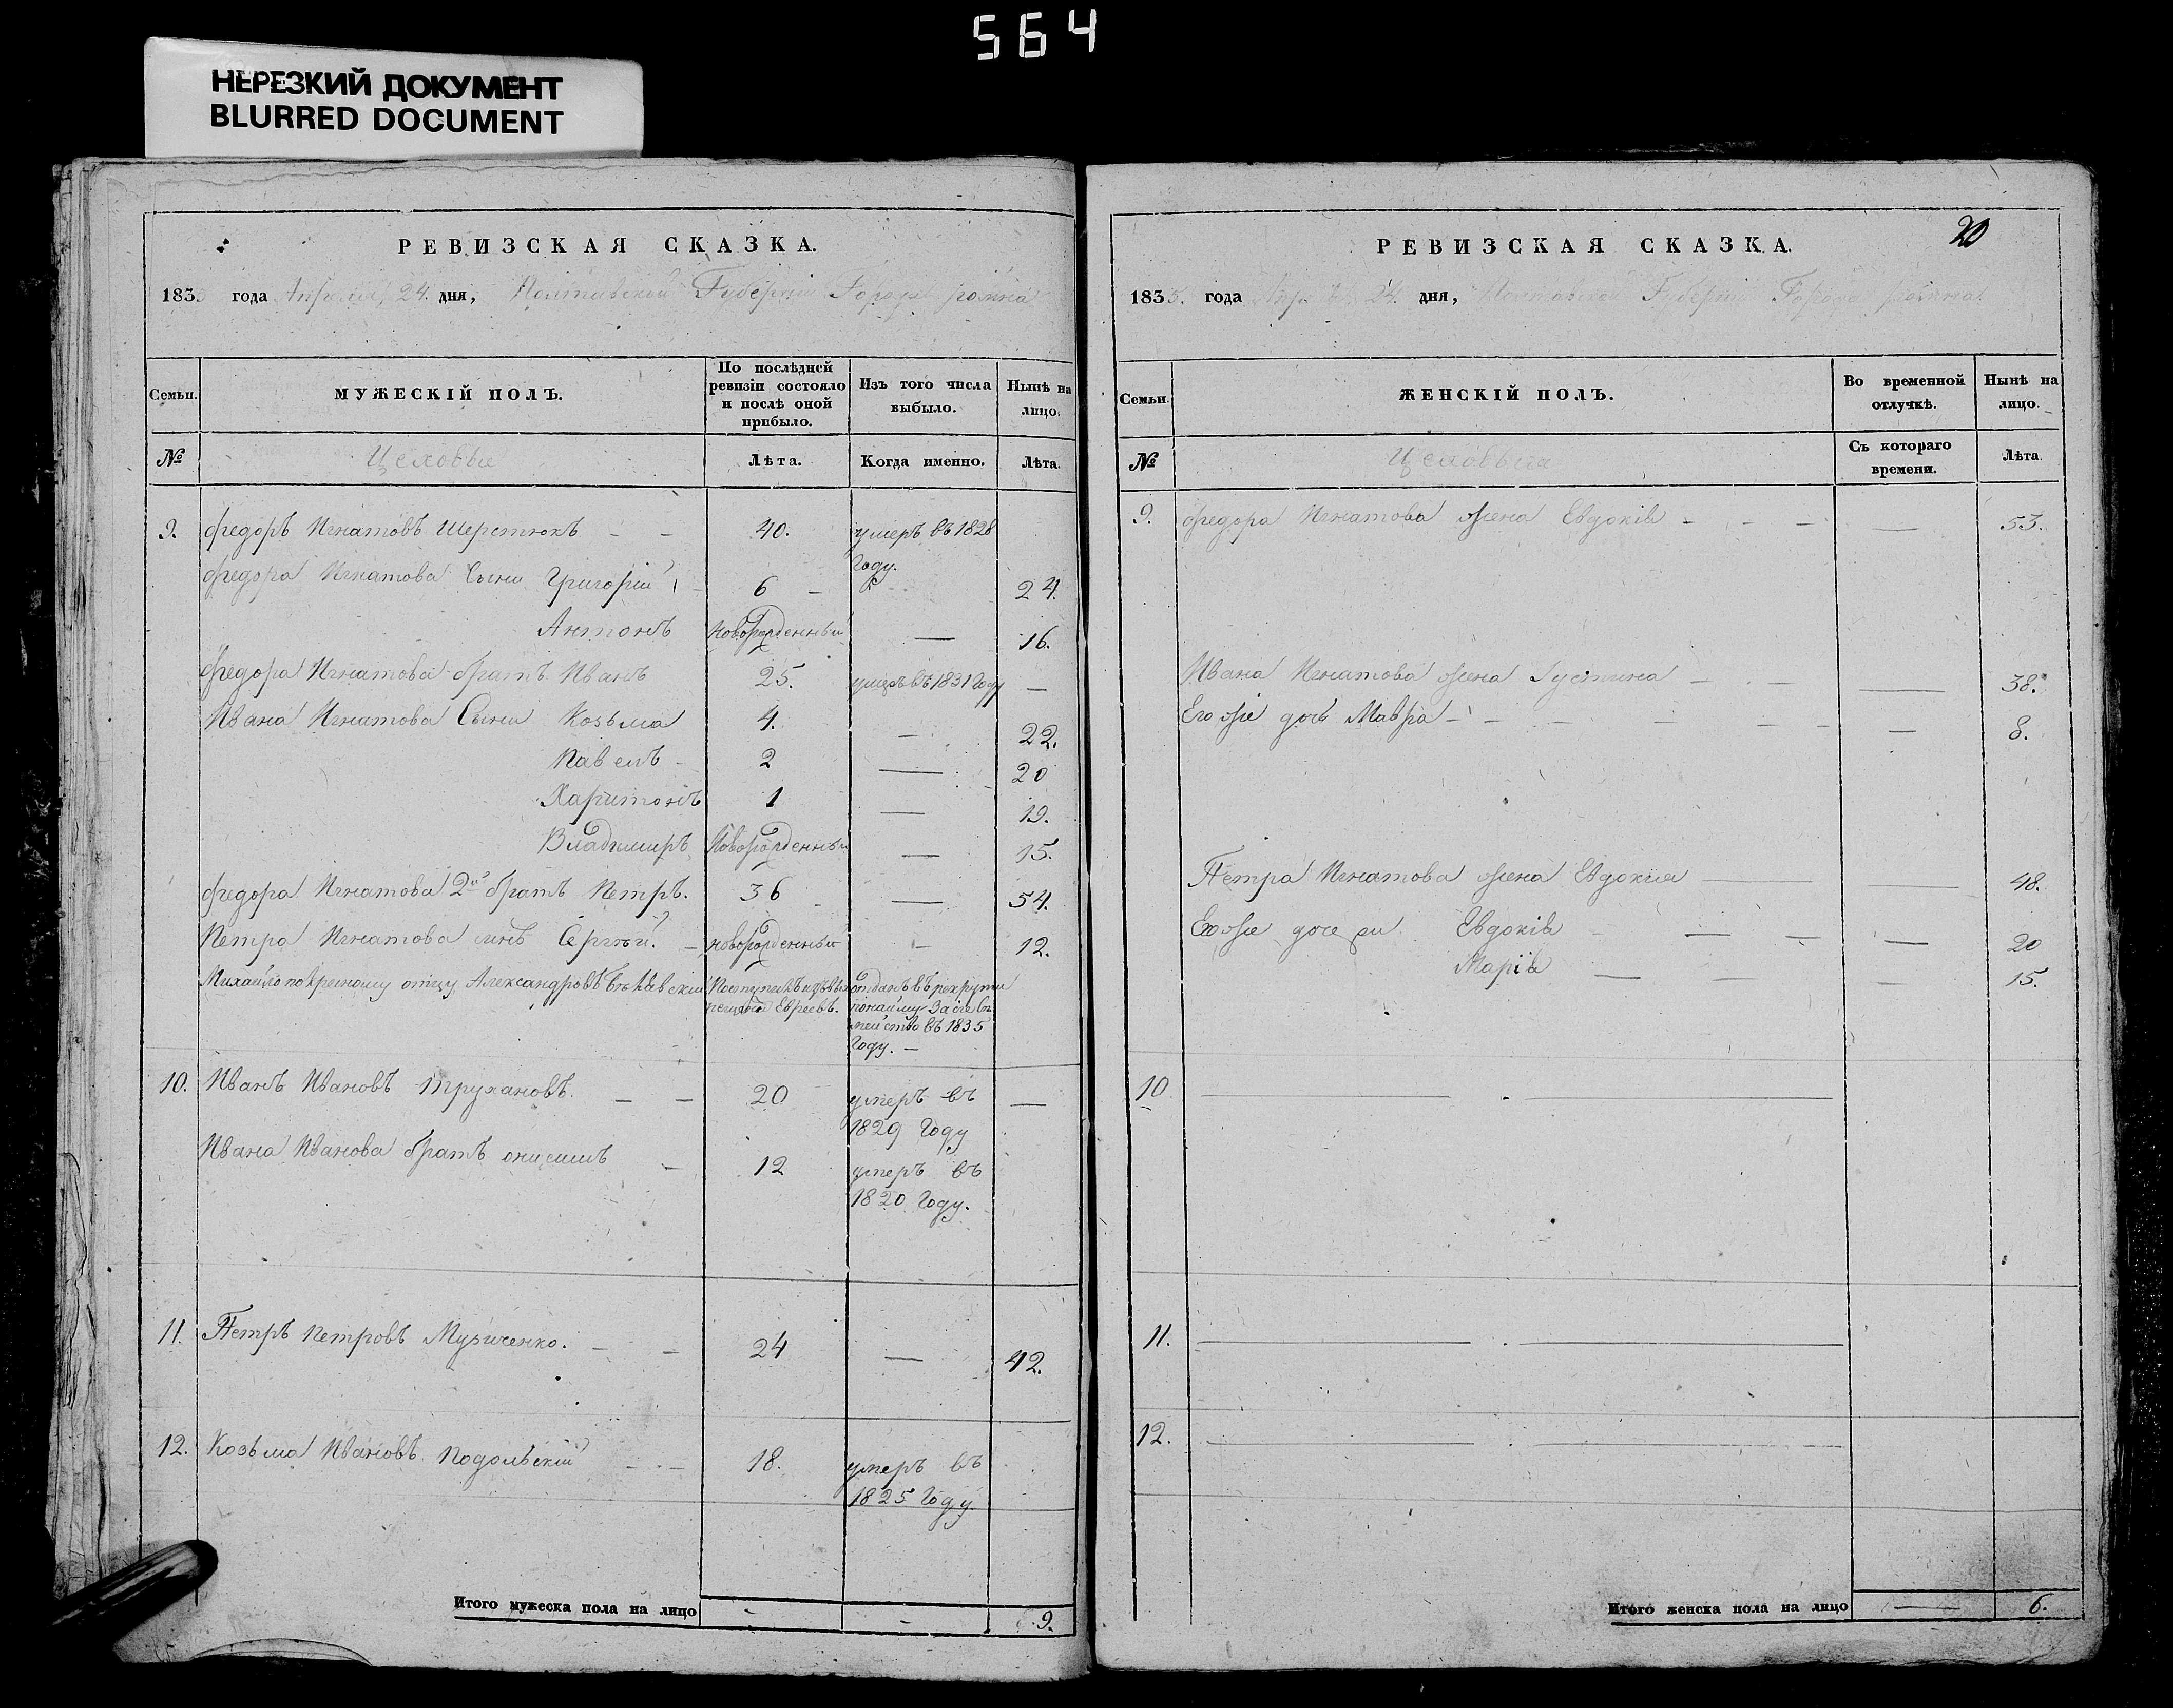 564
НЕРЕЗКИЙ ДОКУМЕНТ
BLURRED DOCUMENT
РЕВИЗСКАЯ СКАЗКА.
1835 года Апреля 24. дня, Полтавской Губерніи Города Ромна
Семьи.
МУЖЕСКІЙ ПОЛЪ.
По послѣдней ревизіи состояло и послѣ оной прибыло.
Изъ того числа выбыло.
Нынѣ на лицо.
№
Цеховые
Лѣта.
Когда именно.
Лѣта.
9. Федоръ Игнатовъ Шерстюкъ 40. умеръ въ 1828
Году.
Федора Игнатова Сыни Григорій 6 24.
Антонъ Новорожденный 16.
Федора Игнатова братъ Иванъ 25. умеръ въ 1831 Году
Ивана Игнатова Сыни Козьма 4. 22.
Павелъ 2 20
Харитонъ 1 19.
Владимиръ Новорожденный 15.
Федора Игнатова 2й братъ Петръ. 36 54.
Петра Игнатова сынъ Сергѣй. новорожденный 12.
Михайло по крестному отцу Александровъ
Евреевъ.
отданъ въ рекруты
въ 1835
Году.
10. Иванъ Ивановъ Трухановъ. 20 умеръ въ
1829 Году
Ивана Иванова братъ Онисимъ 12 умеръ въ
1820 Году.
11. Петръ Петровъ Музиченко. 24 42.
12. Козьма Ивановъ Подольскій 18. умеръ въ
1825 Году.
Итого мужеска пола на лицо 9.
20
РЕВИЗСКАЯ СКАЗКА.
1835. года Апреля 24. дня, Полтавской Губерніи Города Ромна
Семьи.
ЖЕНСКІЙ ПОЛЪ.
Во временной отлучкѣ.
Нынѣ на лицо.
№
Цеховыя
Съ котораго времени.
Лѣта.
9. Федора Игнатова жена Евдокія 53.
Ивана Игнатова жена Іустина 38.
Его же дочь Мавра 8.
Петра Игнатова жена Евдокія 48.
Его же дочери Евдокія 20
Марія 15.
10
11.
12.
Итого женска пола на лицо 6.